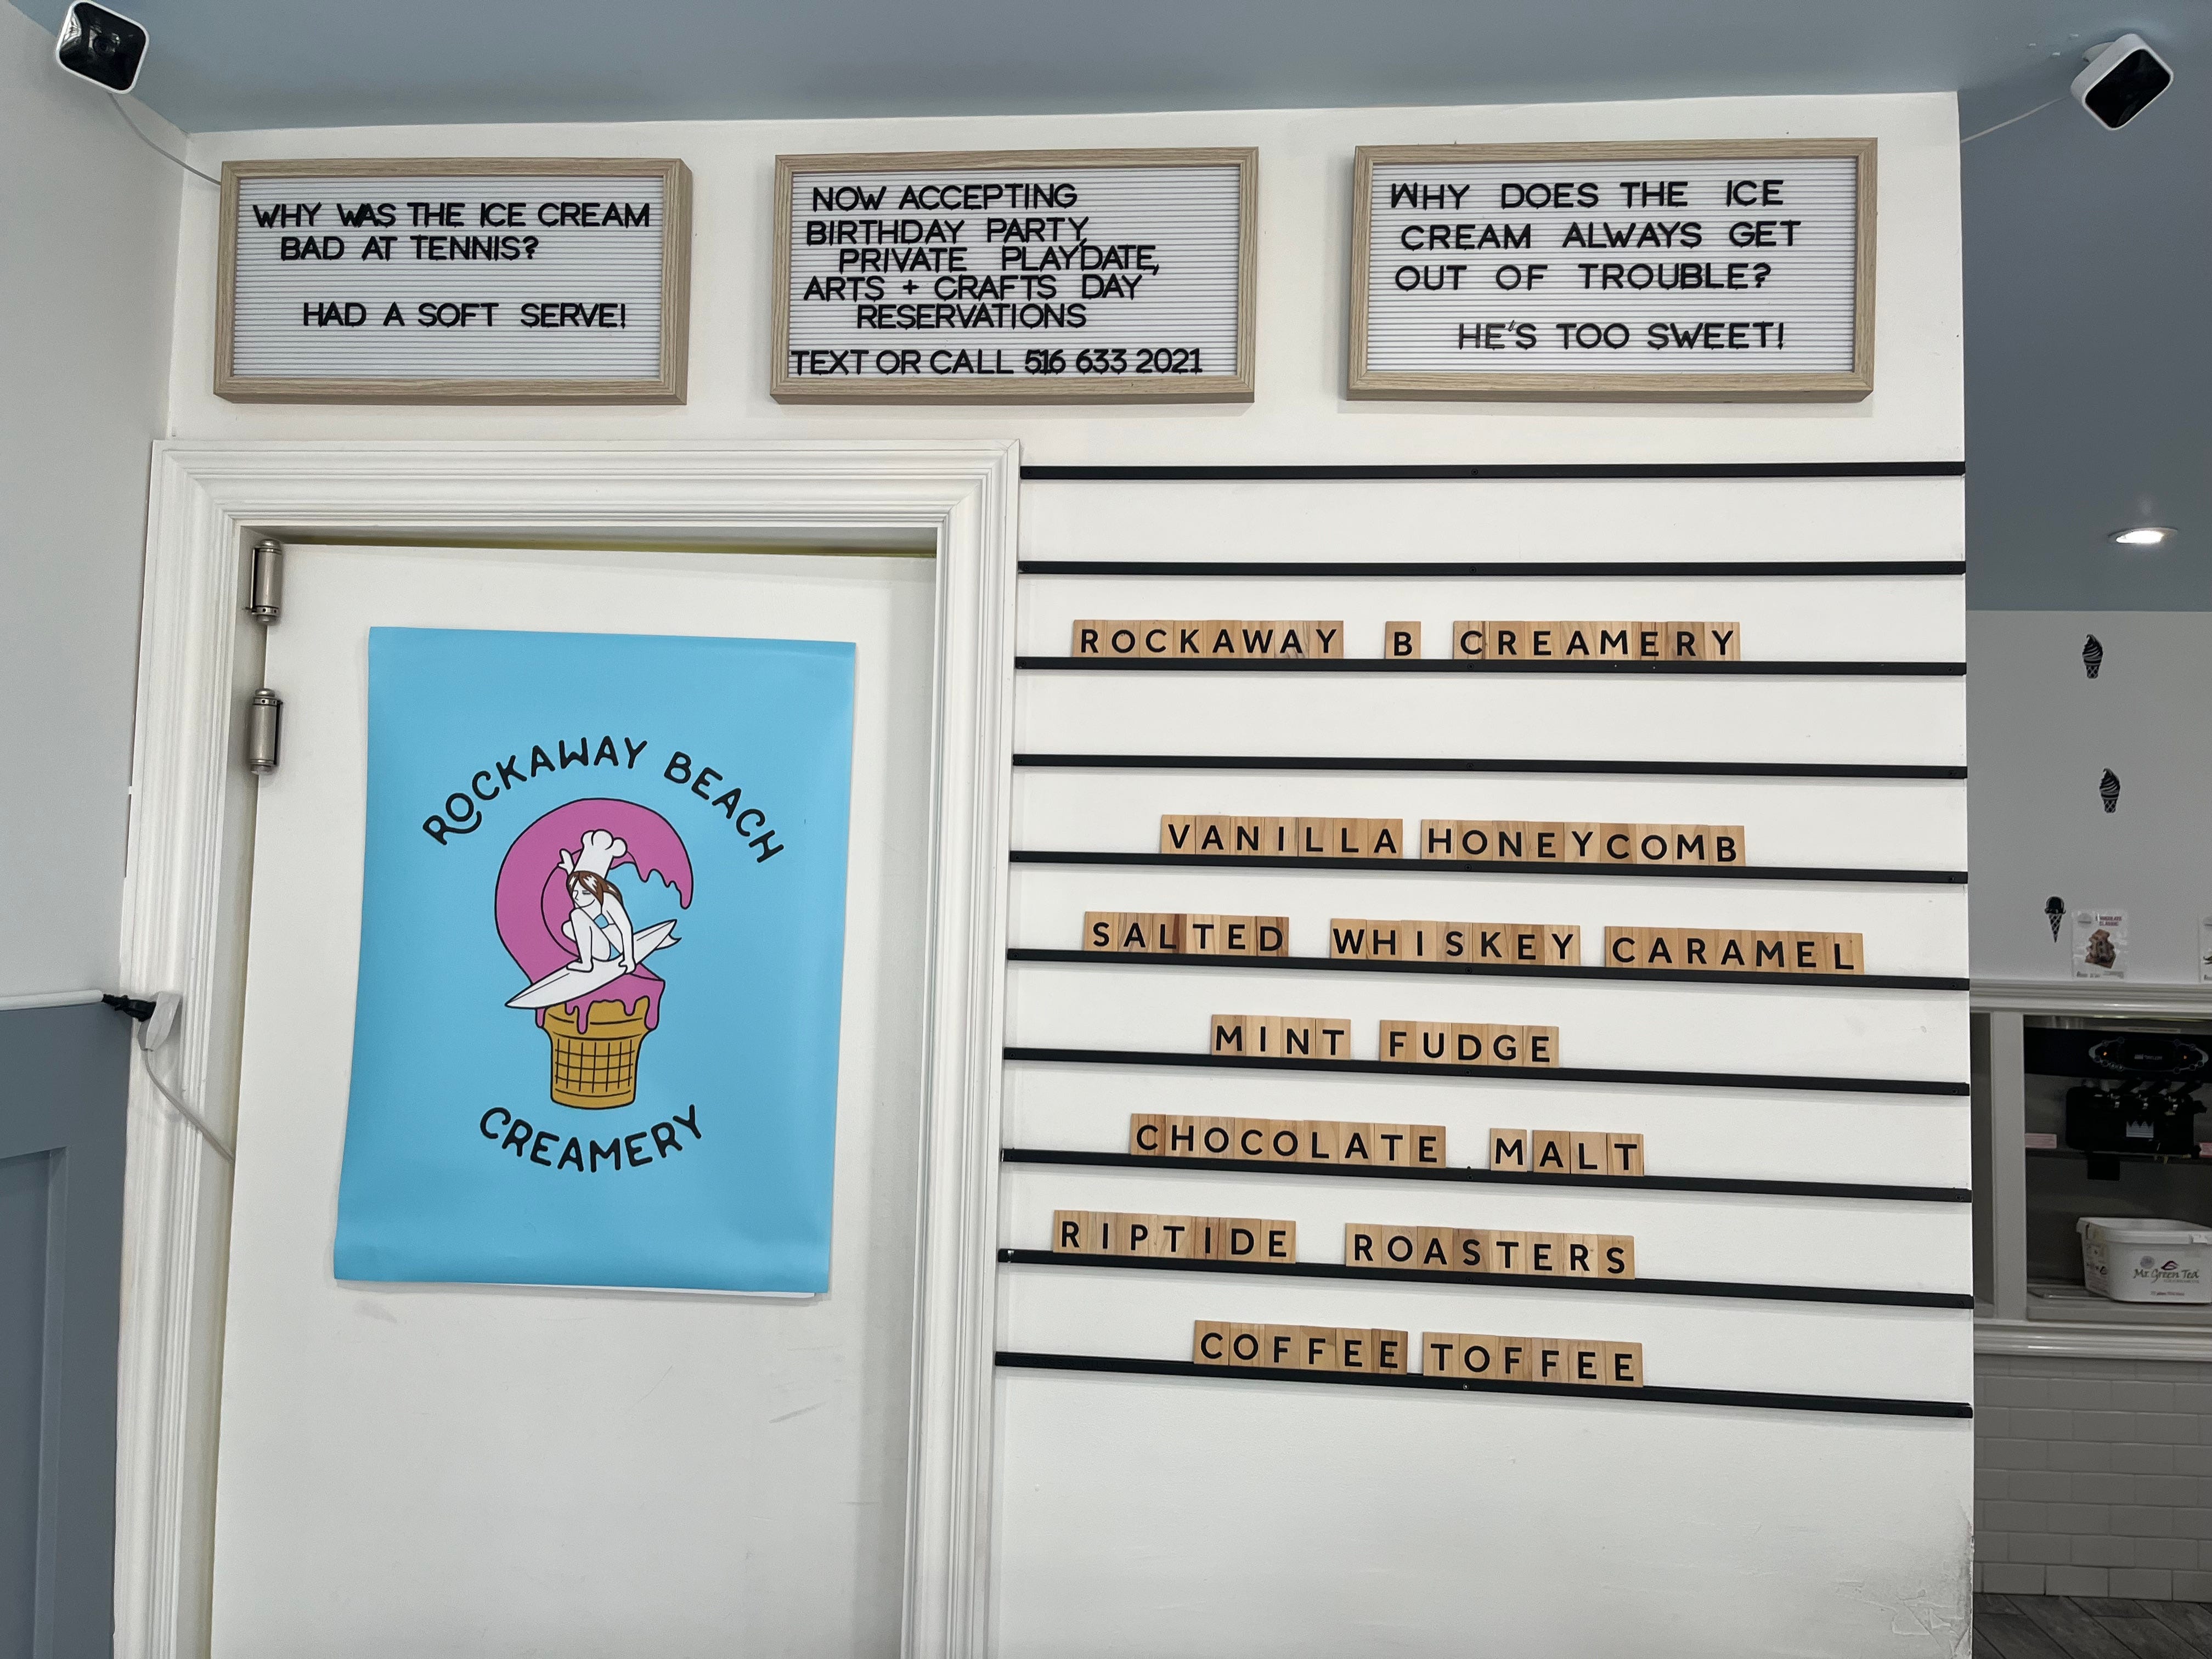 WHY WAS THE ICE CREAM
BAD AT TENNIS?
HAD A SOFT SERVE!
NOW ACCEPTING
BIRTHDAY PARTY,
PRIVATE PLAYDATE,
ARTS + CRAFTS DAY
RESERVATIONS
TEXT OR CALL 516 633 2021
WHY DOES THE ICE
CREAM ALWAYS GET
OUT OF TROUBLE?
HE'S TOO SWEET!
ROCKAWAY BEACH
CREAMERY
ROCKAWAY B CREAMERY
VANILLA HONEYCOMB
SALTED WHISKEY CARAMEL
MINT FUDGE
CHOCOLATE MALT
RIPTIDE ROASTERS
COFFEE TOFFEE
Mr. Green Tea